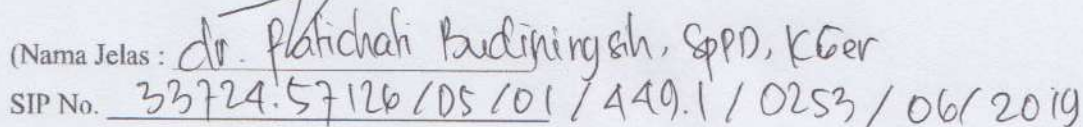 (Nama Jelas : dr. Platichah Budiningsih, SpPD, KGer
SIP No. 33724.57126/DS/01/449.1/0253/06/2019